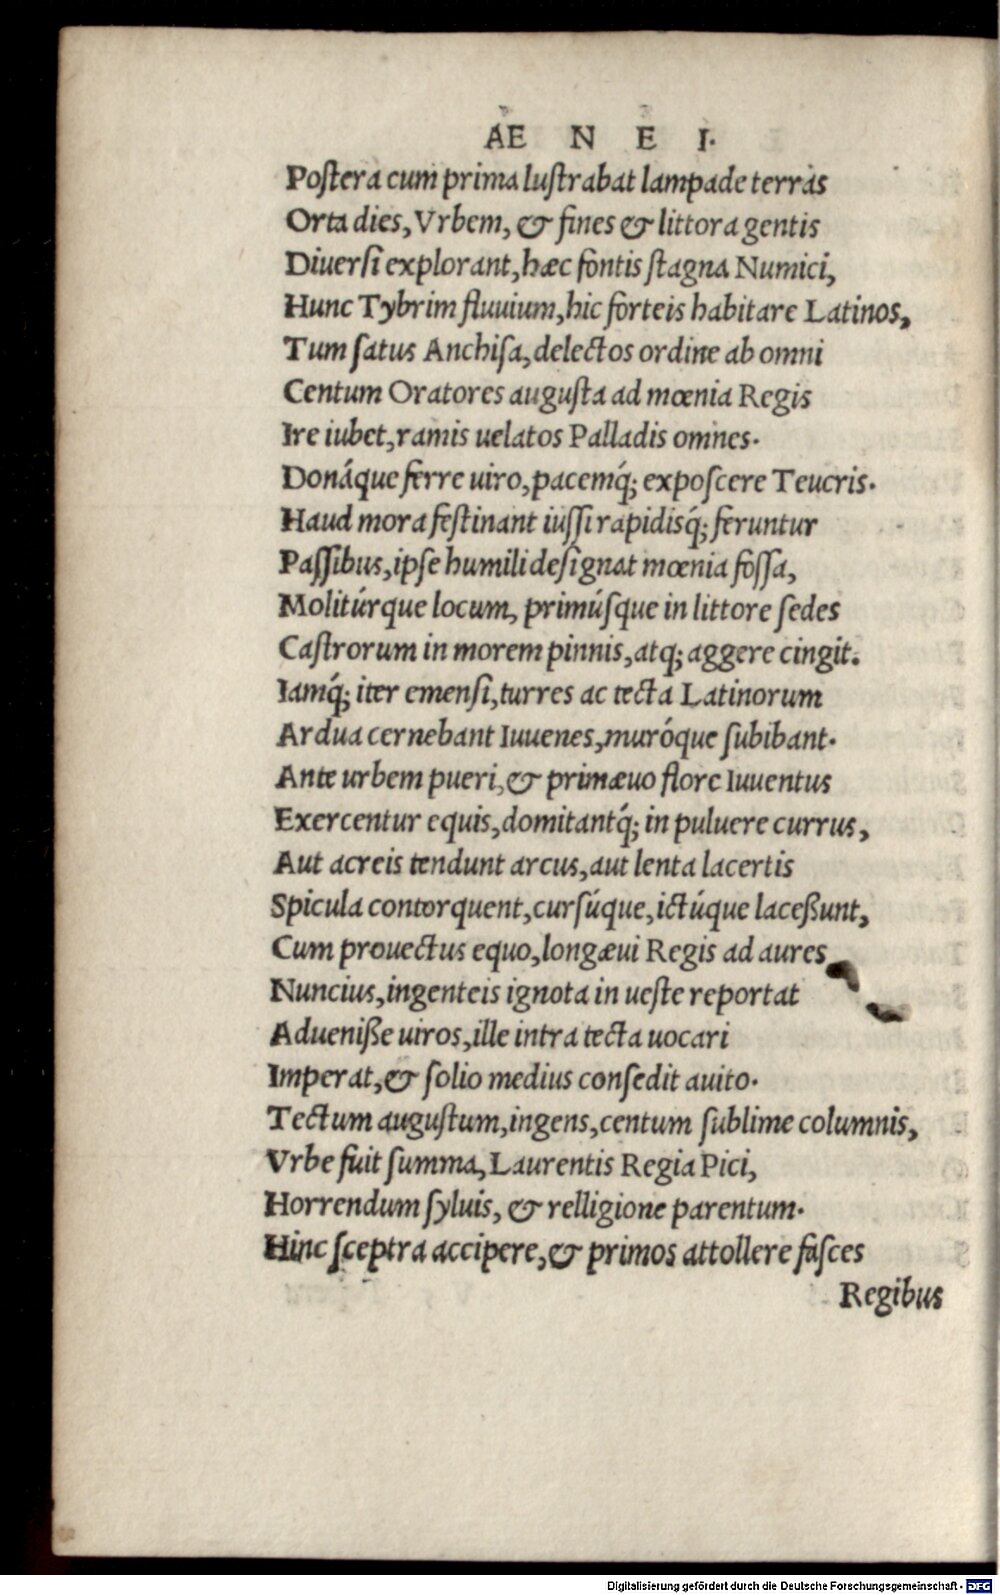 AE N E I.
Postera cum prima lustrabat lampade terras
Orta dies, Vrbem, & fines & littora gentis
Diuersi explorant, hæc fontis stagna Numici,
Hunc Tybrim fluuium, hic forteis habitare Latinos,
Tum satus Anchisa, delectos ordine ab omni
Centum Oratores augusta ad mœnia Regis
Ire iubet, ramis uelatos Palladis omnes.
Donáque ferre uiro, pacemq́; exposcere Teucris.
Haud mora festinant iussi rapidisq́; feruntur
Passibus, ipse humili designat mœnia fossa,
Molitúrque locum, primúsque in littore sedes
Castrorum in morem pinnis, atq; aggere cingit.
Iamq́; iter emensi, turres ac tecta Latinorum
Ardua cernebant Iuuenes, muróque subibant.
Ante urbem pueri, & primæuo flore Iuuentus
Exercentur equis, domitantq́; in puluere currus,
Aut acreis tendunt arcus, aut lenta lacertis
Spicula contorquent, cursúque, ictúque laceßunt,
Cum prouectus equo, longæui Regis ad aures
Nuncius, ingenteis ignota in ueste reportat
Adueniße uiros, ille intra tecta uocari
Imperat, & solio medius consedit auito.
Tectum augustum, ingens, centum sublime columnis,
Vrbe fuit summa, Laurentis Regia Pici,
Horrendum syluis, & relligione parentum.
Hinc sceptra accipere, & primos attollere fasces
Regibus
Digitalisierung gefördert durch die Deutsche Forschungsgemeinschaft - DFG